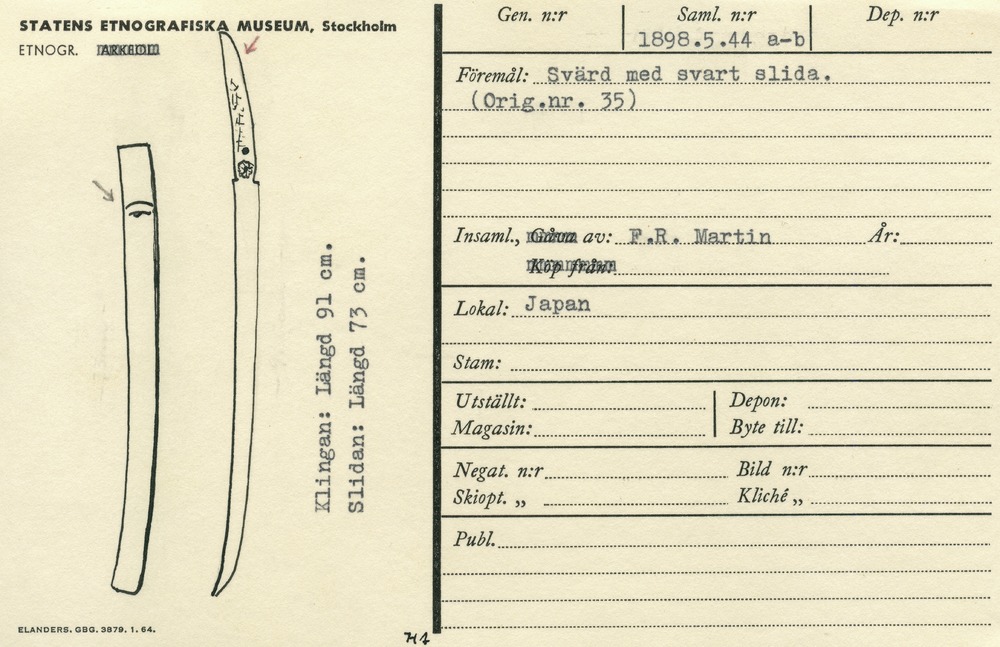 STATENS ETNOGRAFISKA MUSEUM, Stockholm
ETNOGR. ARKEOL.
Klingan: Längd 91 cm.
Slidan: Längd 73 cm.
ELANDERS. GBG. 3879. 1. 64.
Gen. n:r Saml. n:r Dep. n:r
1898.5.44 a-b
Föremål: Svärd med svart slida.
(Orig.nr. 35)
Insaml., Gåva av: F.R. Martin År:
Köp från:
Lokal: Japan
Stam:
Utställt: Depon:
Magasin: Byte till:
Negat. n:r Bild n:r
Skiopt. „ Kliché „
Publ.